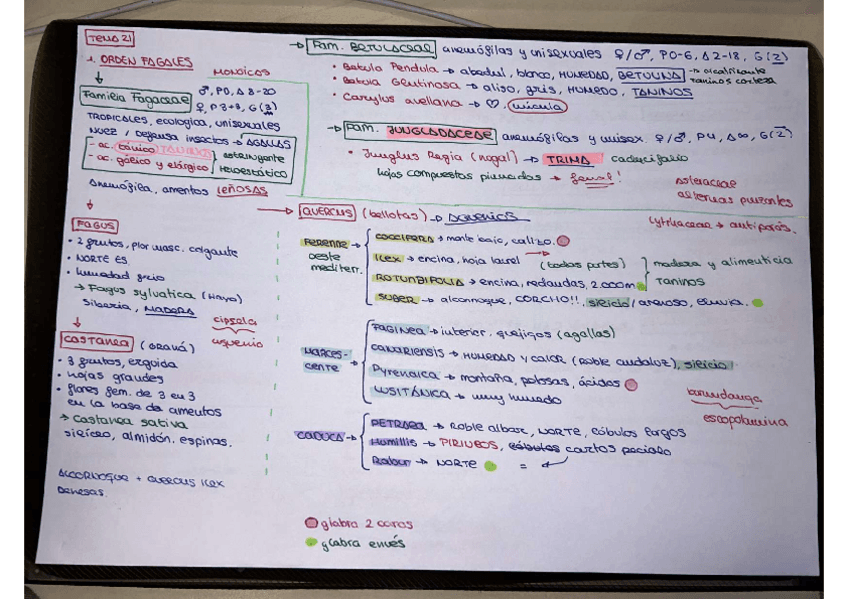 TEMA 21
1. ORDEN FAGALES
MONOICOS
Familia Fagaceae ♂, P0, A 8-20
♀, P3+3, G(3)
TROPICALES, ecológica, unisexuales
NUEZ / Defensa insectos → AGALLAS
- ac. tánico
- ac. gálico y elárgico } astringente
Heroestático
Anemófila, amentos LEÑOSAS
FAGUS
• 2 frutos, flor masc. colgante
• NORTE ES
• humedad frío
→ Fagus sylvatica (Haya)
Siberia, MADERA
cipsela
aquenio
CASTANEA (ORAVÁ)
• 3 frutos, erguida
• hojas grandes
• flores fem. de 3 en 3
en la base de amentos
→ Castanea sativa
silíceo, almidón, espinas.
ALCORNOQUE + QUERCUS ILEX
DEHESAS.
→ Fam. BETULACEAE anemófilas y unisexuales ♀/♂, P0-6, A 2-18, G(2)
• Betula Pendula → abedul, blanco, HUMEDAD, BETULINA → cicatrizante
taninos corteza
• Betula Glutinosa → aliso, gris, HUMEDO, TANINOS
• Corylus avellana → ♡, núcula
→ Fam. JUNGLADACEAE anemófilas y unisex. ♀/♂, P4, A∞, G(2)
• Junglus Regia (nogal) → TRIMA caducifolio
hojas compuestas pinnadas →
Asteraceae
alternas punzantes
Lythraceae → antiparás.
→ QUERCUS (bellotas) →
PERENNE →
oeste
mediterr.
COCCIFERA → monte bajo, calizo.
ILEX → encina, hoja laurel (todas partes)
ROTUNDIFOLIA → encina, redondas, 2.000m
SUBER → alcornoque, CORCHO!!, silíceo / arenoso, lluvia.
} madera y alimenticia
Taninos
MARCES-
CENTE →
FAGINEA → interior. quejigos (agallas)
CANARIENSIS → HUMEDAD Y CALOR (Roble andaluz), silíceo
Pyrenaica → montaña, pelosas, ácidos
LUSITÁNICA → muy húmedo
CADUCA →
PETRAEA → Roble albar, NORTE, lóbulos largos
Humilis → PIRINEOS, lóbulos cortos peciolo
Robur → NORTE =
burundanga
escopolamina
glabra 2 caras
glabra envés